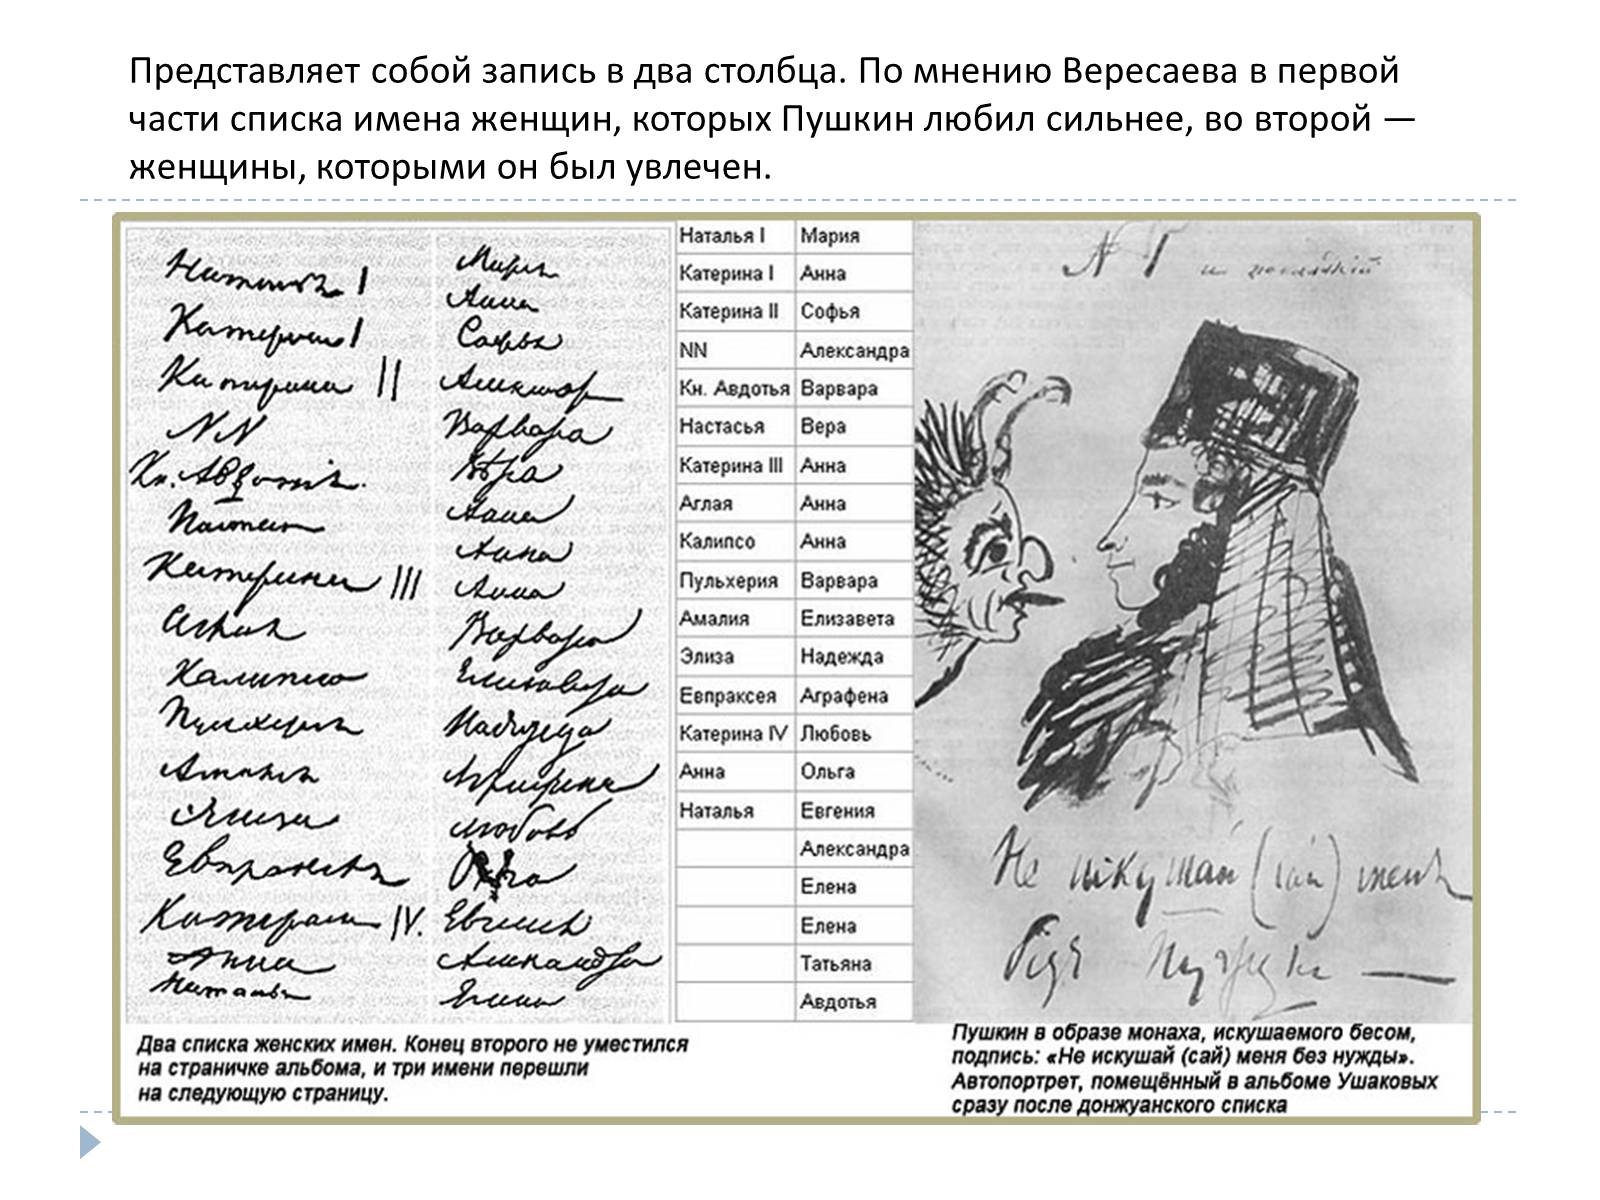 Представляет собой запись в два столбца. По мнению Вересаева в первой
части списка имена женщин, которых Пушкин любил сильнее, во второй —
женщины, которыми он был увлечен.
Наталья I
Катерина I
Катерина II
NN
Кн. Авдотья
Настасья
Катерина III
Аглая
Калипсо
Пульхерия
Амалия
Элиза
Евпраксея
Катерина IV.
Анна
Наталья
Мария
Анна
Софья
Александра
Варвара
Вѣра
Анна
Анна
Анна
Варвара
Елизавета
Надежда
Аграфена
Любовь
Ольга
Евгения
Александра
Елена
Наталья I Мария
Катерина I Анна
Катерина II Софья
NN Александра
Кн. Авдотья Варвара
Настасья Вера
Катерина III Анна
Аглая Анна
Калипсо Анна
Пульхерия Варвара
Амалия Елизавета
Элиза Надежда
Евпраксея Аграфена
Катерина IV Любовь
Анна Ольга
Наталья Евгения
Александра
Елена
Елена
Татьяна
Авдотья
Не искушай (сай) меня
без нужды —
Два списка женских имен. Конец второго не уместился
на страничке альбома, и три имени перешли
на следующую страницу.
Пушкин в образе монаха, искушаемого бесом,
подпись: «Не искушай (сай) меня без нужды».
Автопортрет, помещённый в альбоме Ушаковых
сразу после донжуанского списка